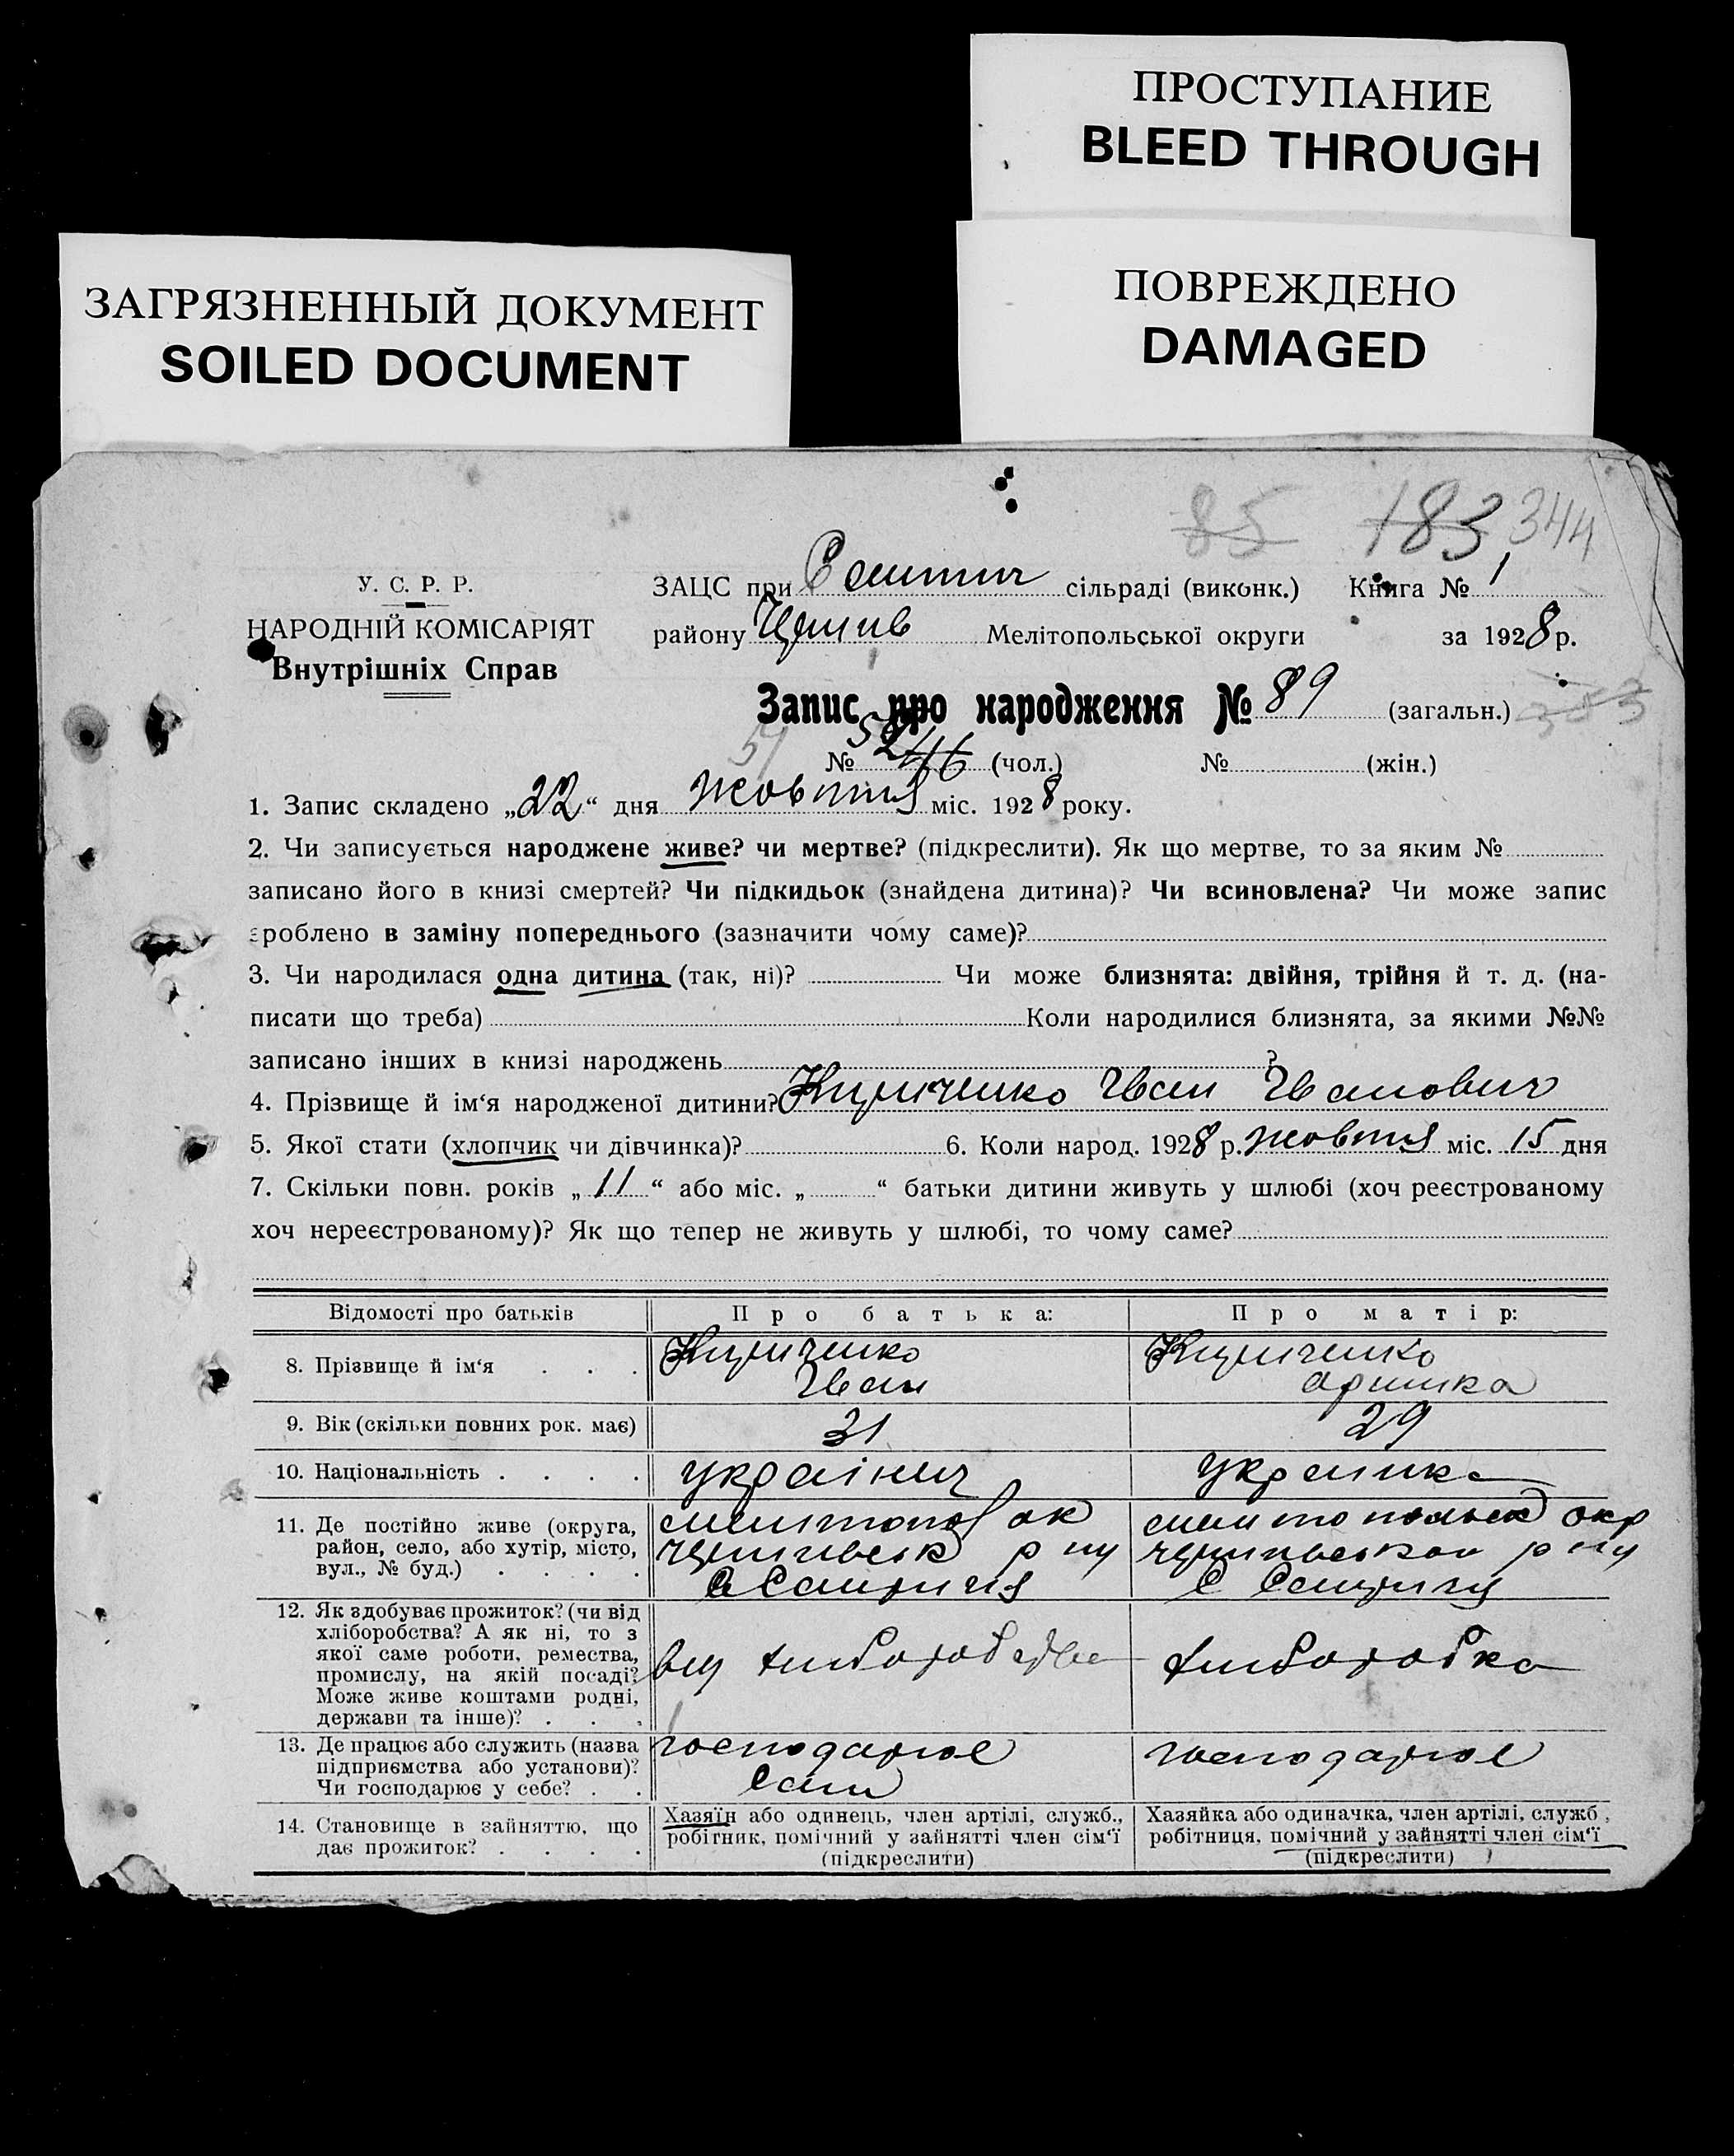 ПРОСТУПАНИЕ
BLEED THROUGH
ЗАГРЯЗНЕННЫЙ ДОКУМЕНТ
SOILED DOCUMENT
ПОВРЕЖДЕНО
DAMAGED
85 183 344
У. С. Р. Р.
НАРОДНІЙ КОМІСАРІЯТ
Внутрішніх Справ
ЗАЦС при сільраді (виконк.) Книга № 1
району Мелітопольської округи за 1928 р.
Запис про народження № 89 (загальн.) 383
51 № 52 46 (чол.) № (жін.)
1. Запис складено „22“ дня жовтня міс. 1928 року.
2. Чи записується народжене живе? чи мертве? (підкреслити). Як що мертве, то за яким №
записано його в книзі смертей? Чи підкидьок (знайдена дитина)? Чи всиновлена? Чи може запис
зроблено в заміну попереднього (зазначити чому саме)?
3. Чи народилася одна дитина (так, ні)? Чи може близнята: двійня, трійня й т. д. (на-
писати що треба) Коли народилися близнята, за якими №№
записано інших в книзі народжень ?
4. Прізвище й ім‘я народженої дитини? Іван Іванович
5. Якої стати (хлопчик чи дівчинка)? 6. Коли народ. 1928 р. жовтня міс. 15 дня
7. Скільки повн. років „11“ або міс. „ “ батьки дитини живуть у шлюбі (хоч реєстрованому
хоч нереєстрованому)? Як що тепер не живуть у шлюбі, то чому саме?
Відомості про батьків Про батька: Про матір:
8. Прізвище й ім‘я . . .
Іван
9. Вік (скільки повних рок. має) 31 29
10. Національність . . . . українец українка
11. Де постійно живе (округа,
район, село, або хутір, місто,
вул., № буд.) . . . .
12. Як здобуває прожиток? (чи від
хліборобства? А як ні, то з
якої саме роботи, ремества,
промислу, на якій посаді?
Може живе коштами родні,
держави та інше)? . . .
від хліборобства хліборобка
13. Де працює або служить (назва
підприємства або установи)?
Чи господарює у себе? . .
господарює
сам
господарює
14. Становище в зайняттю, що
дає прожиток? . . . .
Хазяїн або одинець, член артілі, служб.,
робітник, помічний у зайнятті член сім‘ї
(підкреслити)
Хазяйка або одиначка, член артілі, служб.,
робітниця, помічний у зайнятті член сім‘ї
(підкреслити)